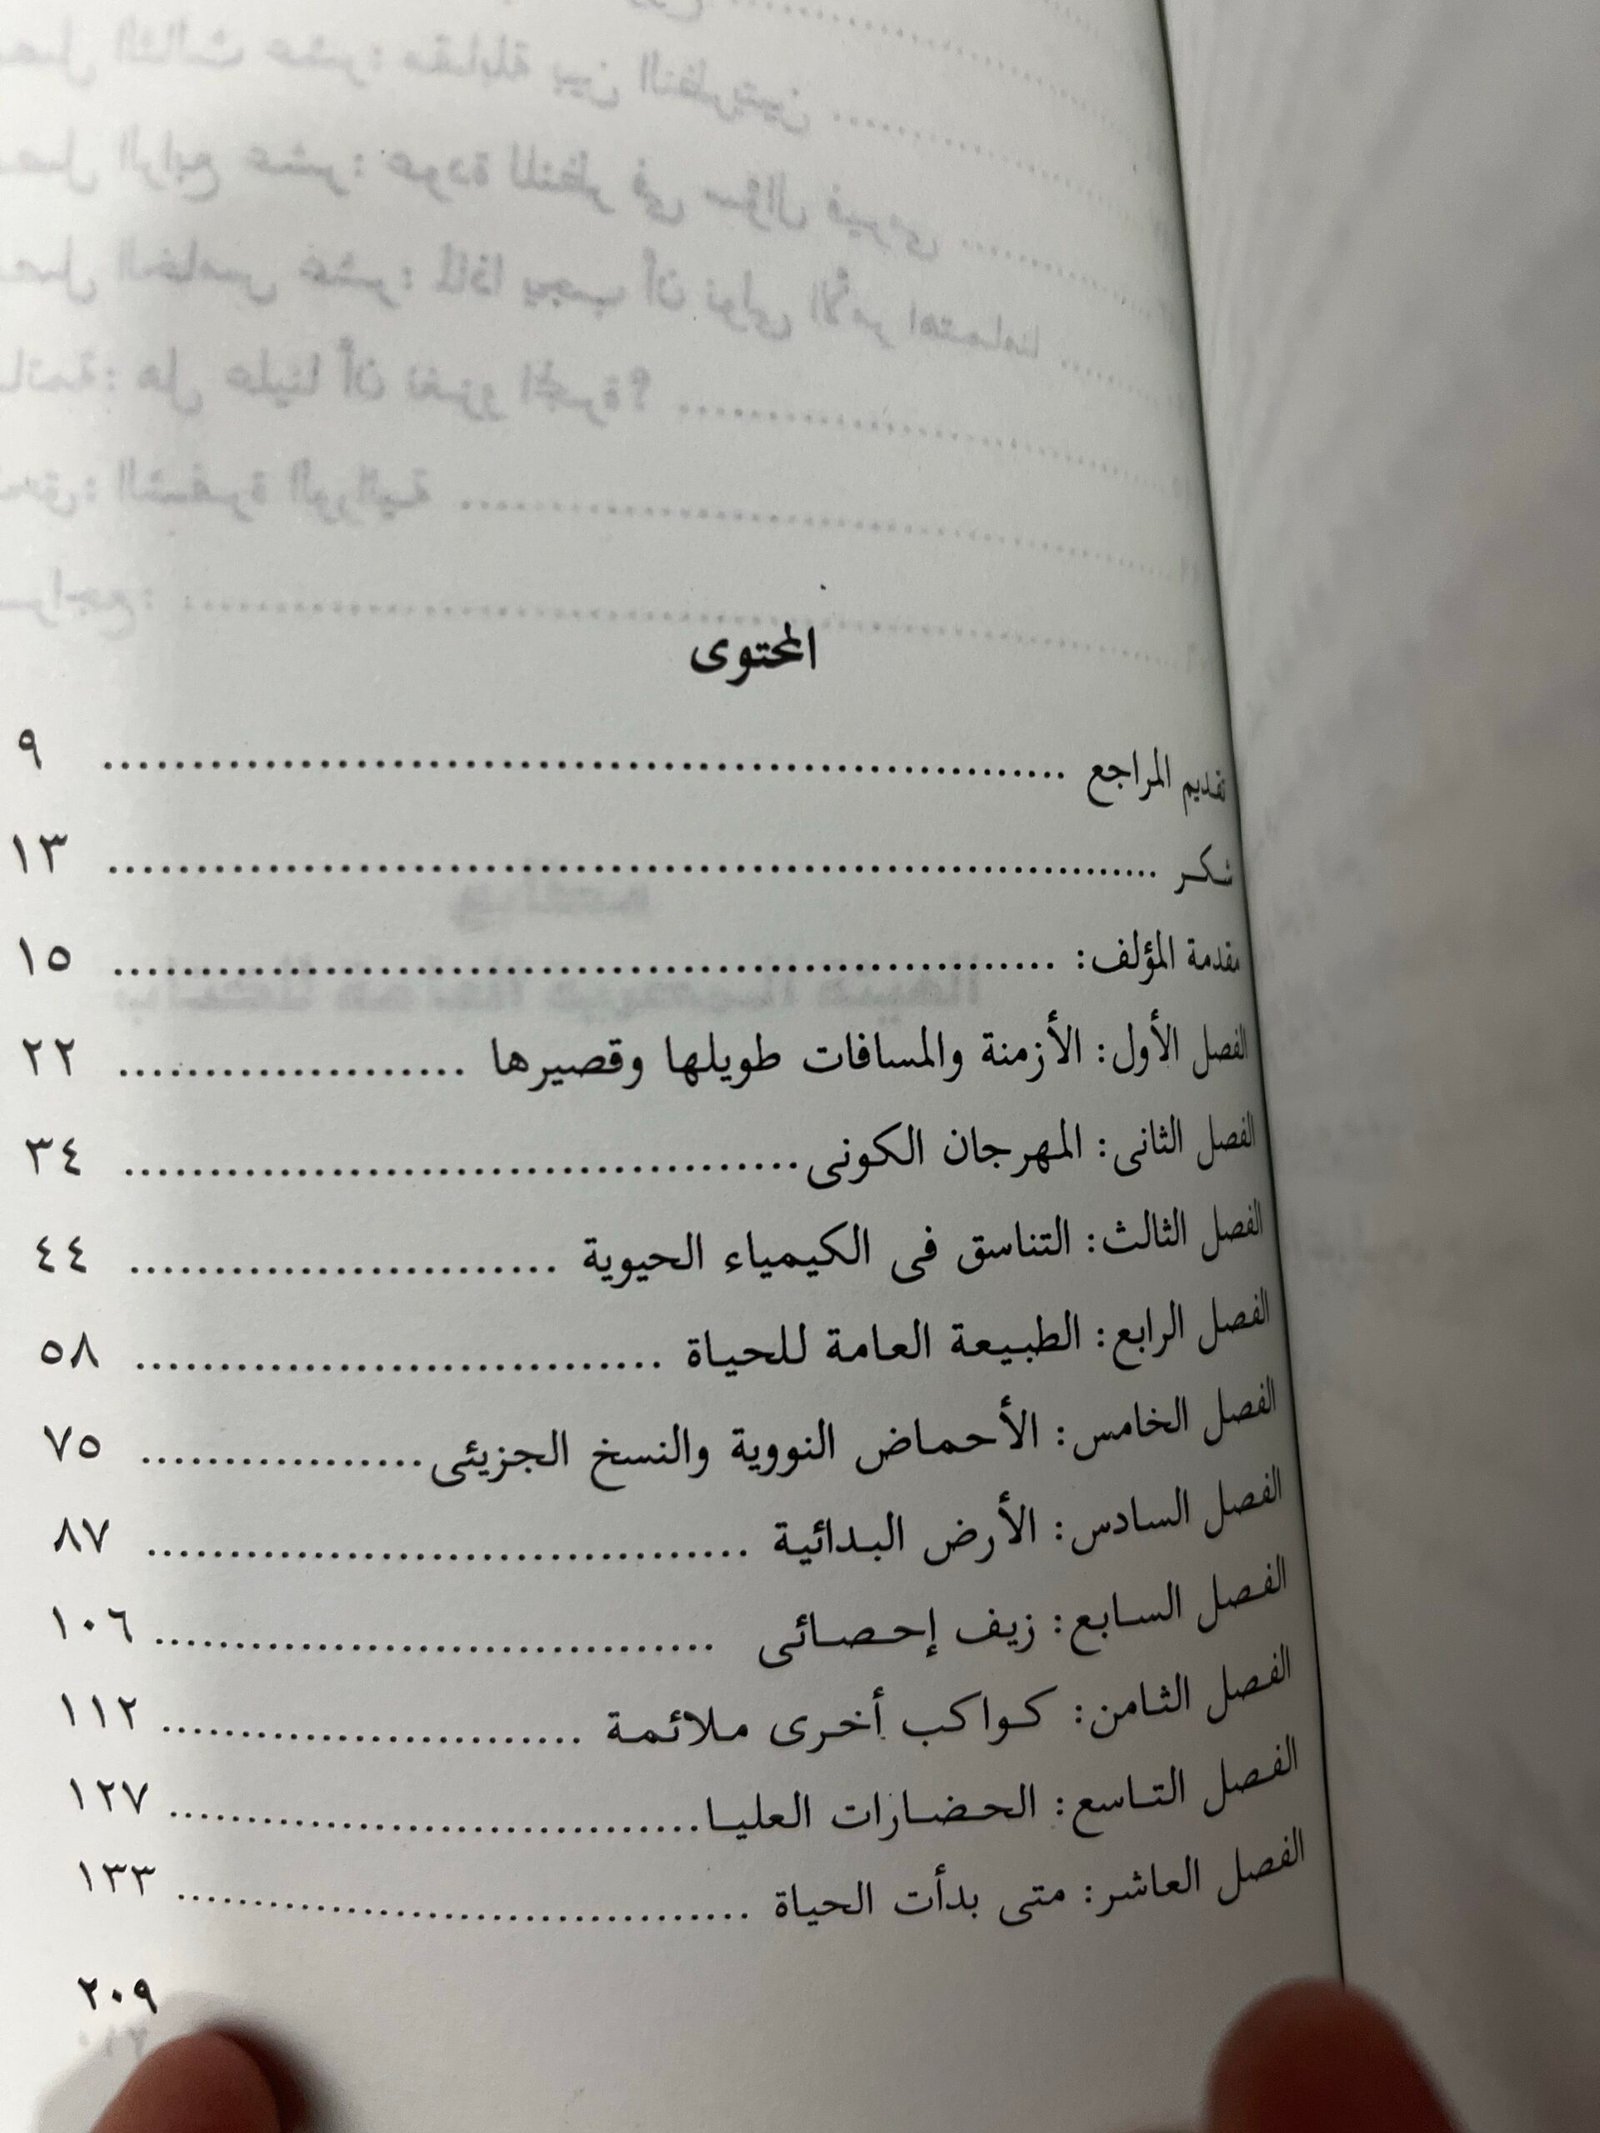 المحتوى
تقديم المراجع ................ ٩
شكر ................ ١٣
مقدمة المؤلف: ................ ١٥
الفصل الأول: الأزمنة والمسافات طويلها وقصيرها ................ ٢٢
الفصل الثانى: المهرجان الكونى ................ ٣٤
الفصل الثالث: التناسق فى الكيمياء الحيوية ................ ٤٤
الفصل الرابع: الطبيعة العامة للحياة ................ ٥٨
الفصل الخامس: الأحماض النووية والنسخ الجزيئى ................ ٧٥
الفصل السادس: الأرض البدائية ................ ٨٧
الفصل السابع: زيف إحصائى ................ ١٠٦
الفصل الثامن: كواكب أخرى ملائمة ................ ١١٢
الفصل التاسع: الحضارات العليا ................ ١٢٧
الفصل العاشر: متى بدأت الحياة ................ ١٣٣
٢٠٩